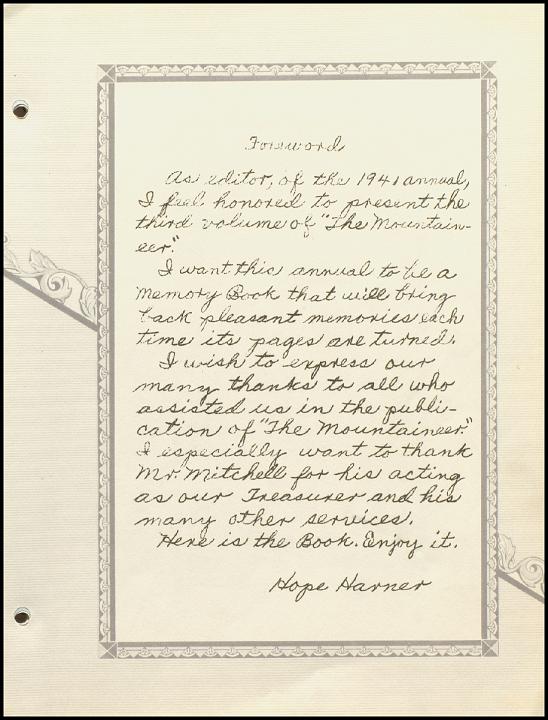 Foreword
As editor, of the 1941 annual,
I feel honored to present the
third volume of "The Mountain-
eer."
I want this annual to be a
Memory Book that will bring
back pleasant memories each
time its pages are turned.
I wish to express our
many thanks to all who
assisted us in the publi-
cation of "The Mountaineer."
I especially want to thank
Mr. Mitchell for his acting
as our Treasurer and his
many other services.
Here is the Book. Enjoy it.
Hope Harner